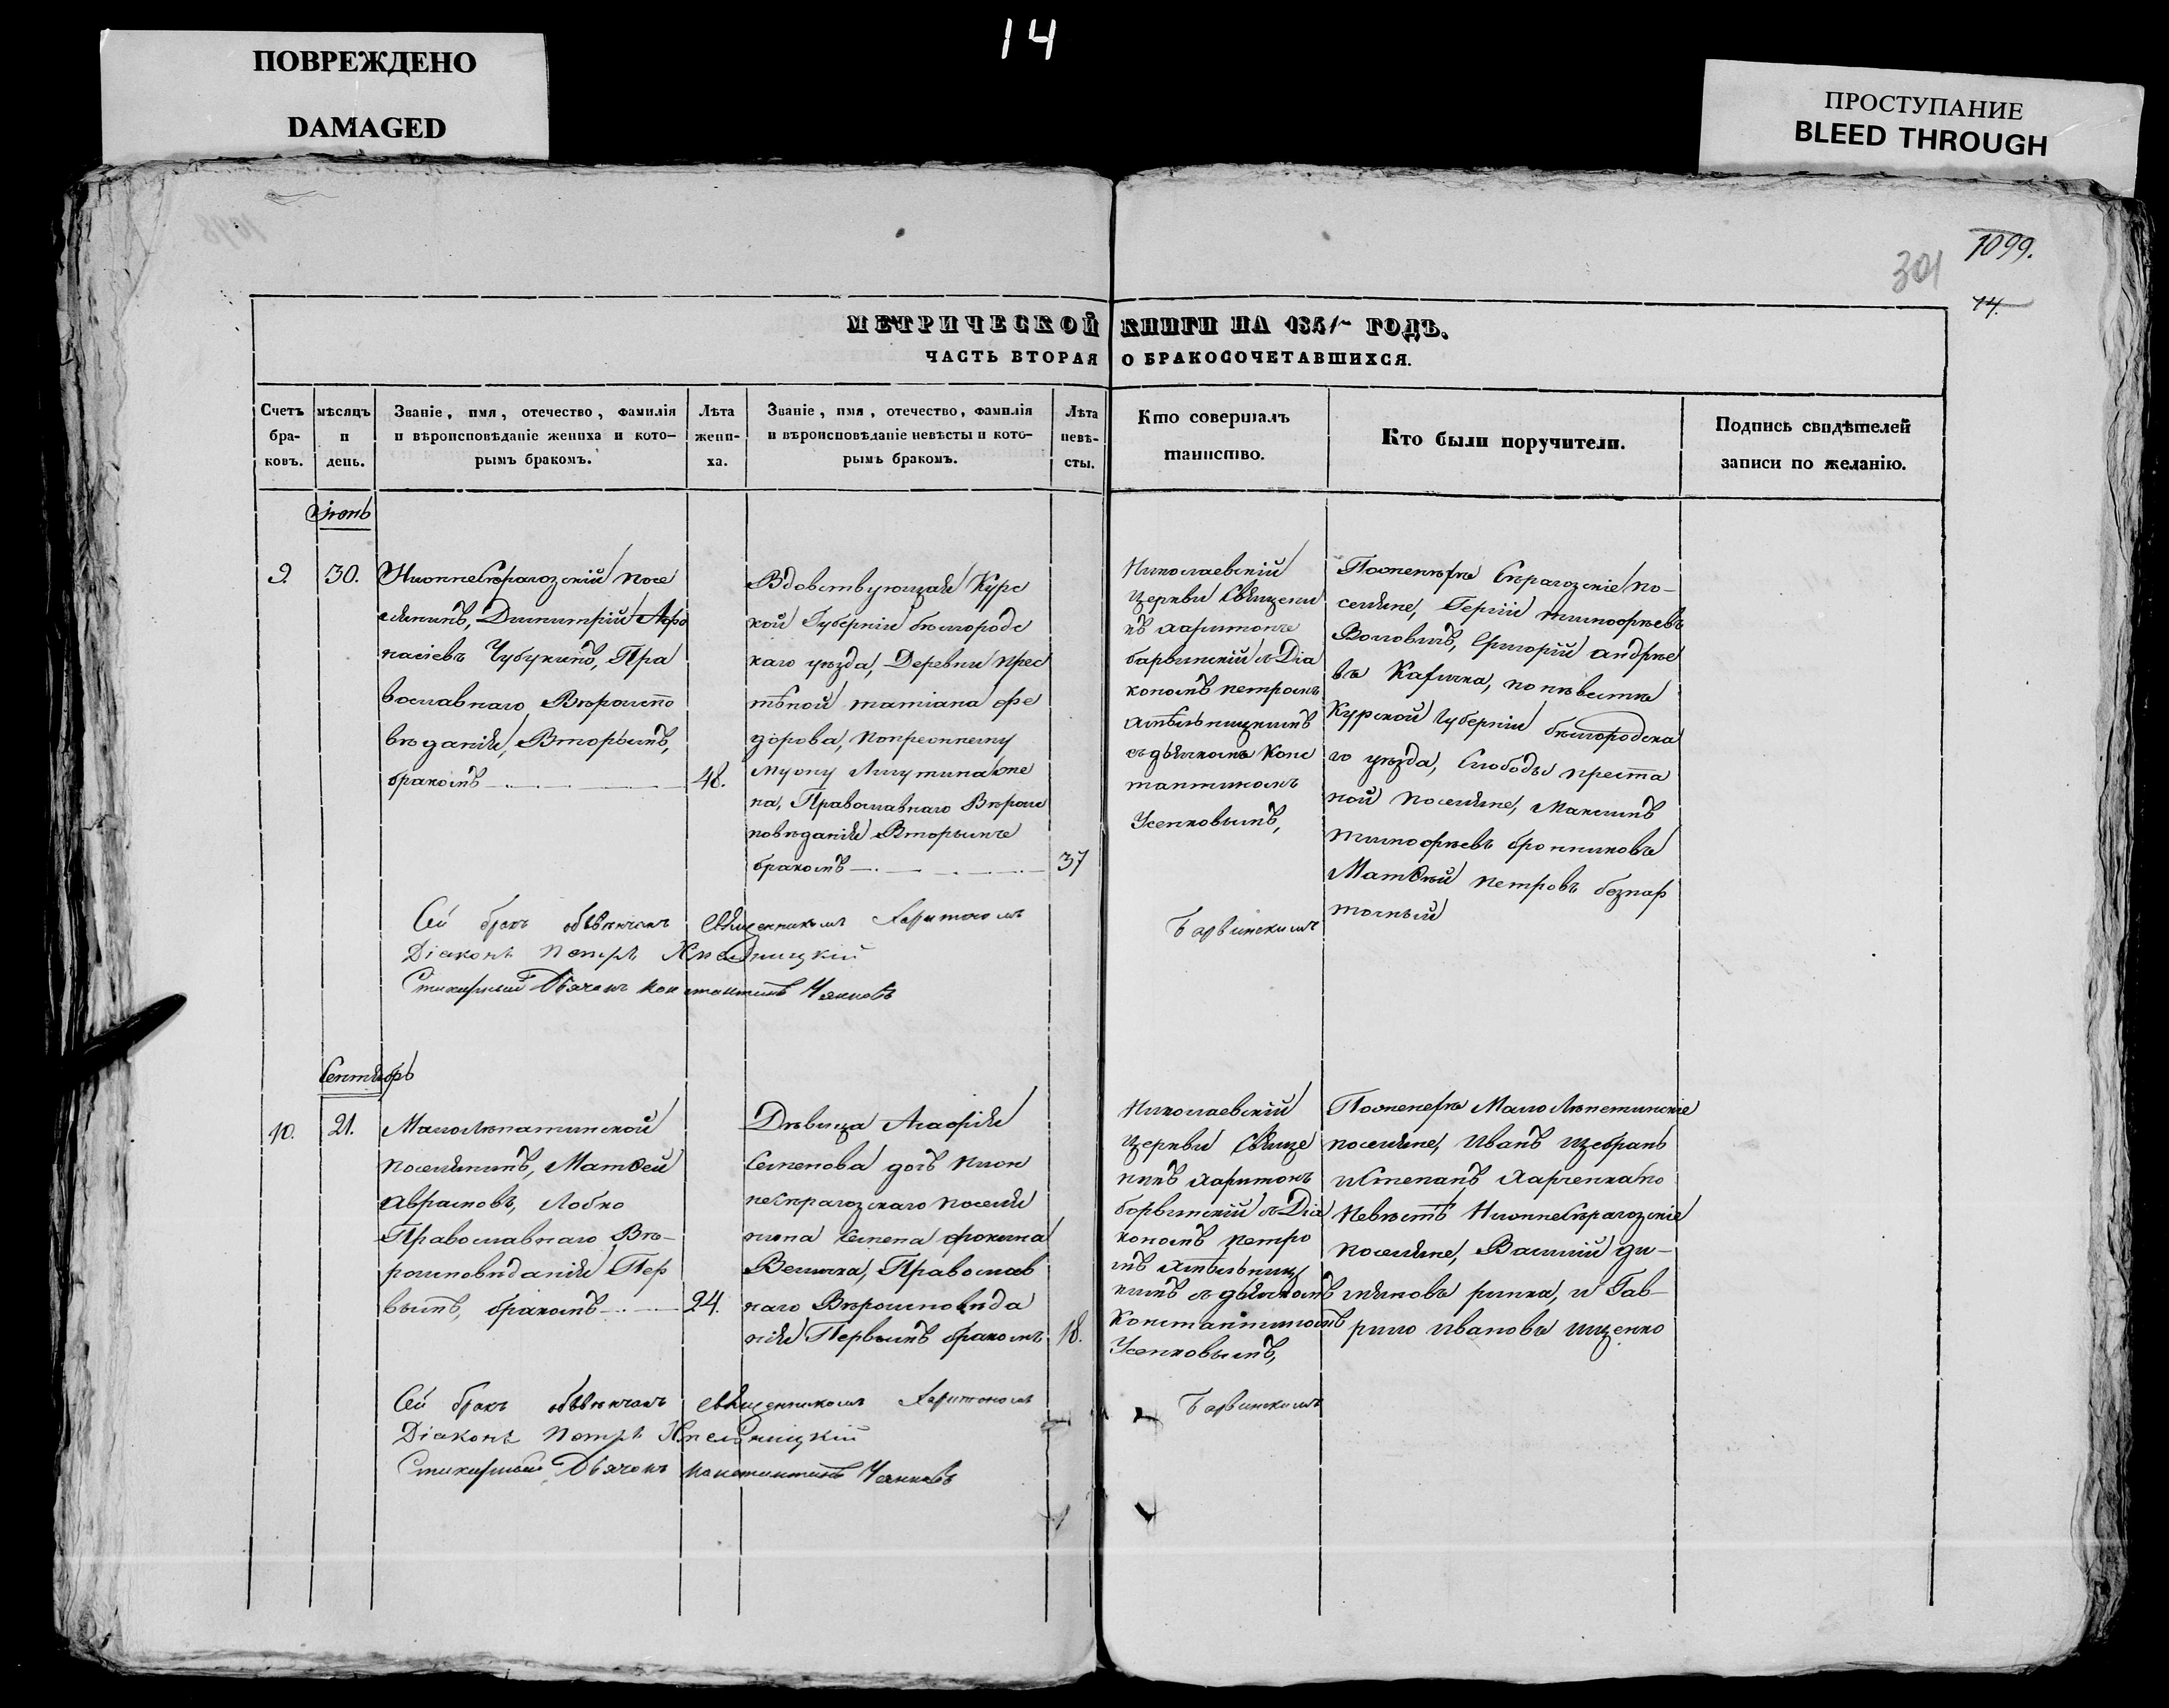 14
ПОВРЕЖДЕНО
DAMAGED
ПРОСТУПАНИЕ
BLEED THROUGH
1099.
301
14.
МЕТРИЧЕСКОЙ КНИГИ НА 1851 ГОДЪ.
ЧАСТЬ ВТОРАЯ О БРАКОСОЧЕТАВШИХСЯ.
Счетъ бра-ковъ.
мѣсяцъ и день.
Званіе, имя, отечество, фамилія и вѣроисповѣданіе жениха и кото-рымъ бракомъ.
Лѣта жени-ха.
Званіе, имя, отечество, фамилія и вѣроисповѣданіе невѣсты и кото-рымъ бракомъ.
Лѣта невѣ-сты.
Кто совершалъ таинство.
Кто были поручители.
Подпись свидѣтелей записи по желанію.
Іюнь
9.
30.
Нижнесѣрагозскій посе
лянинъ, Димитрій Афо
насіевъ Чубукинъ, Пра
вославнаго Вѣроиспо
вѣданія, Вторымъ,
бракомъ
48.
Вдовствующая Курс
кой Губерніи бѣлгородс
каго уѣзда, Деревни
татіана фе
дорова,
мужу
на, Православнаго Вѣроис
повѣданія Вторымъ
бракомъ
37
Николаевскій
церкви Священи
къ харитонъ
барвинскій съ Діа
кономъ петромъ
хмѣльницкимъ
съ дьячкомъ Конс
тантиномъ
Усенковымъ,
По женихѣ Сѣрагозскіе по-
селяне, тимофѣевъ
Воловикъ, Григорій андрѣе
въ по невѣстѣ
Курской Губерніи бѣлгородска
го уѣзда, Слободы
поселяне, Максимъ
тимофѣевъ бронниковъ
Матвѣй петровъ
Сей бракъ обвѣнчанъ священникомъ Харитономъ Барвинскимъ
Діаконъ Петръ Хмельницкій
Стихарный Дьячокъ константинъ
Сентябрь
10.
21.
Малолѣпатинской
поселянинъ, Матвей
Аврамовъ, Лобко
Православнаго Вѣ-
роисповѣданія Пер
вымъ, бракомъ
24.
Дѣвица Агафія
Семенова дочь нижн
несѣрагозскаго поселя
нина Семена фокина
Величка, Православ
наго Вѣроисповѣда
нія Первымъ бракомъ
18.
Николаевскій
церкви Свяще
никъ харитонъ
борвинскій съ Діа
кономъ петро
мъ хмѣльниц
кимъ съ дьячкомъ
Константиномъ
Усенковымъ,
По женихѣ Мало Лѣпетинскіе
поселяне, Иванъ
и Степанъ Харченка по
Невѣстѣ Нижнесѣрагозскіе
поселяне, Василій де-
мяновъ и Гав-
рило Ивановъ ищенко
Сей бракъ обвѣнчанъ священникомъ Харитономъ Барвинскимъ
Діаконъ Петръ Хмельницкій
Стихарный Дьячокъ константинъ